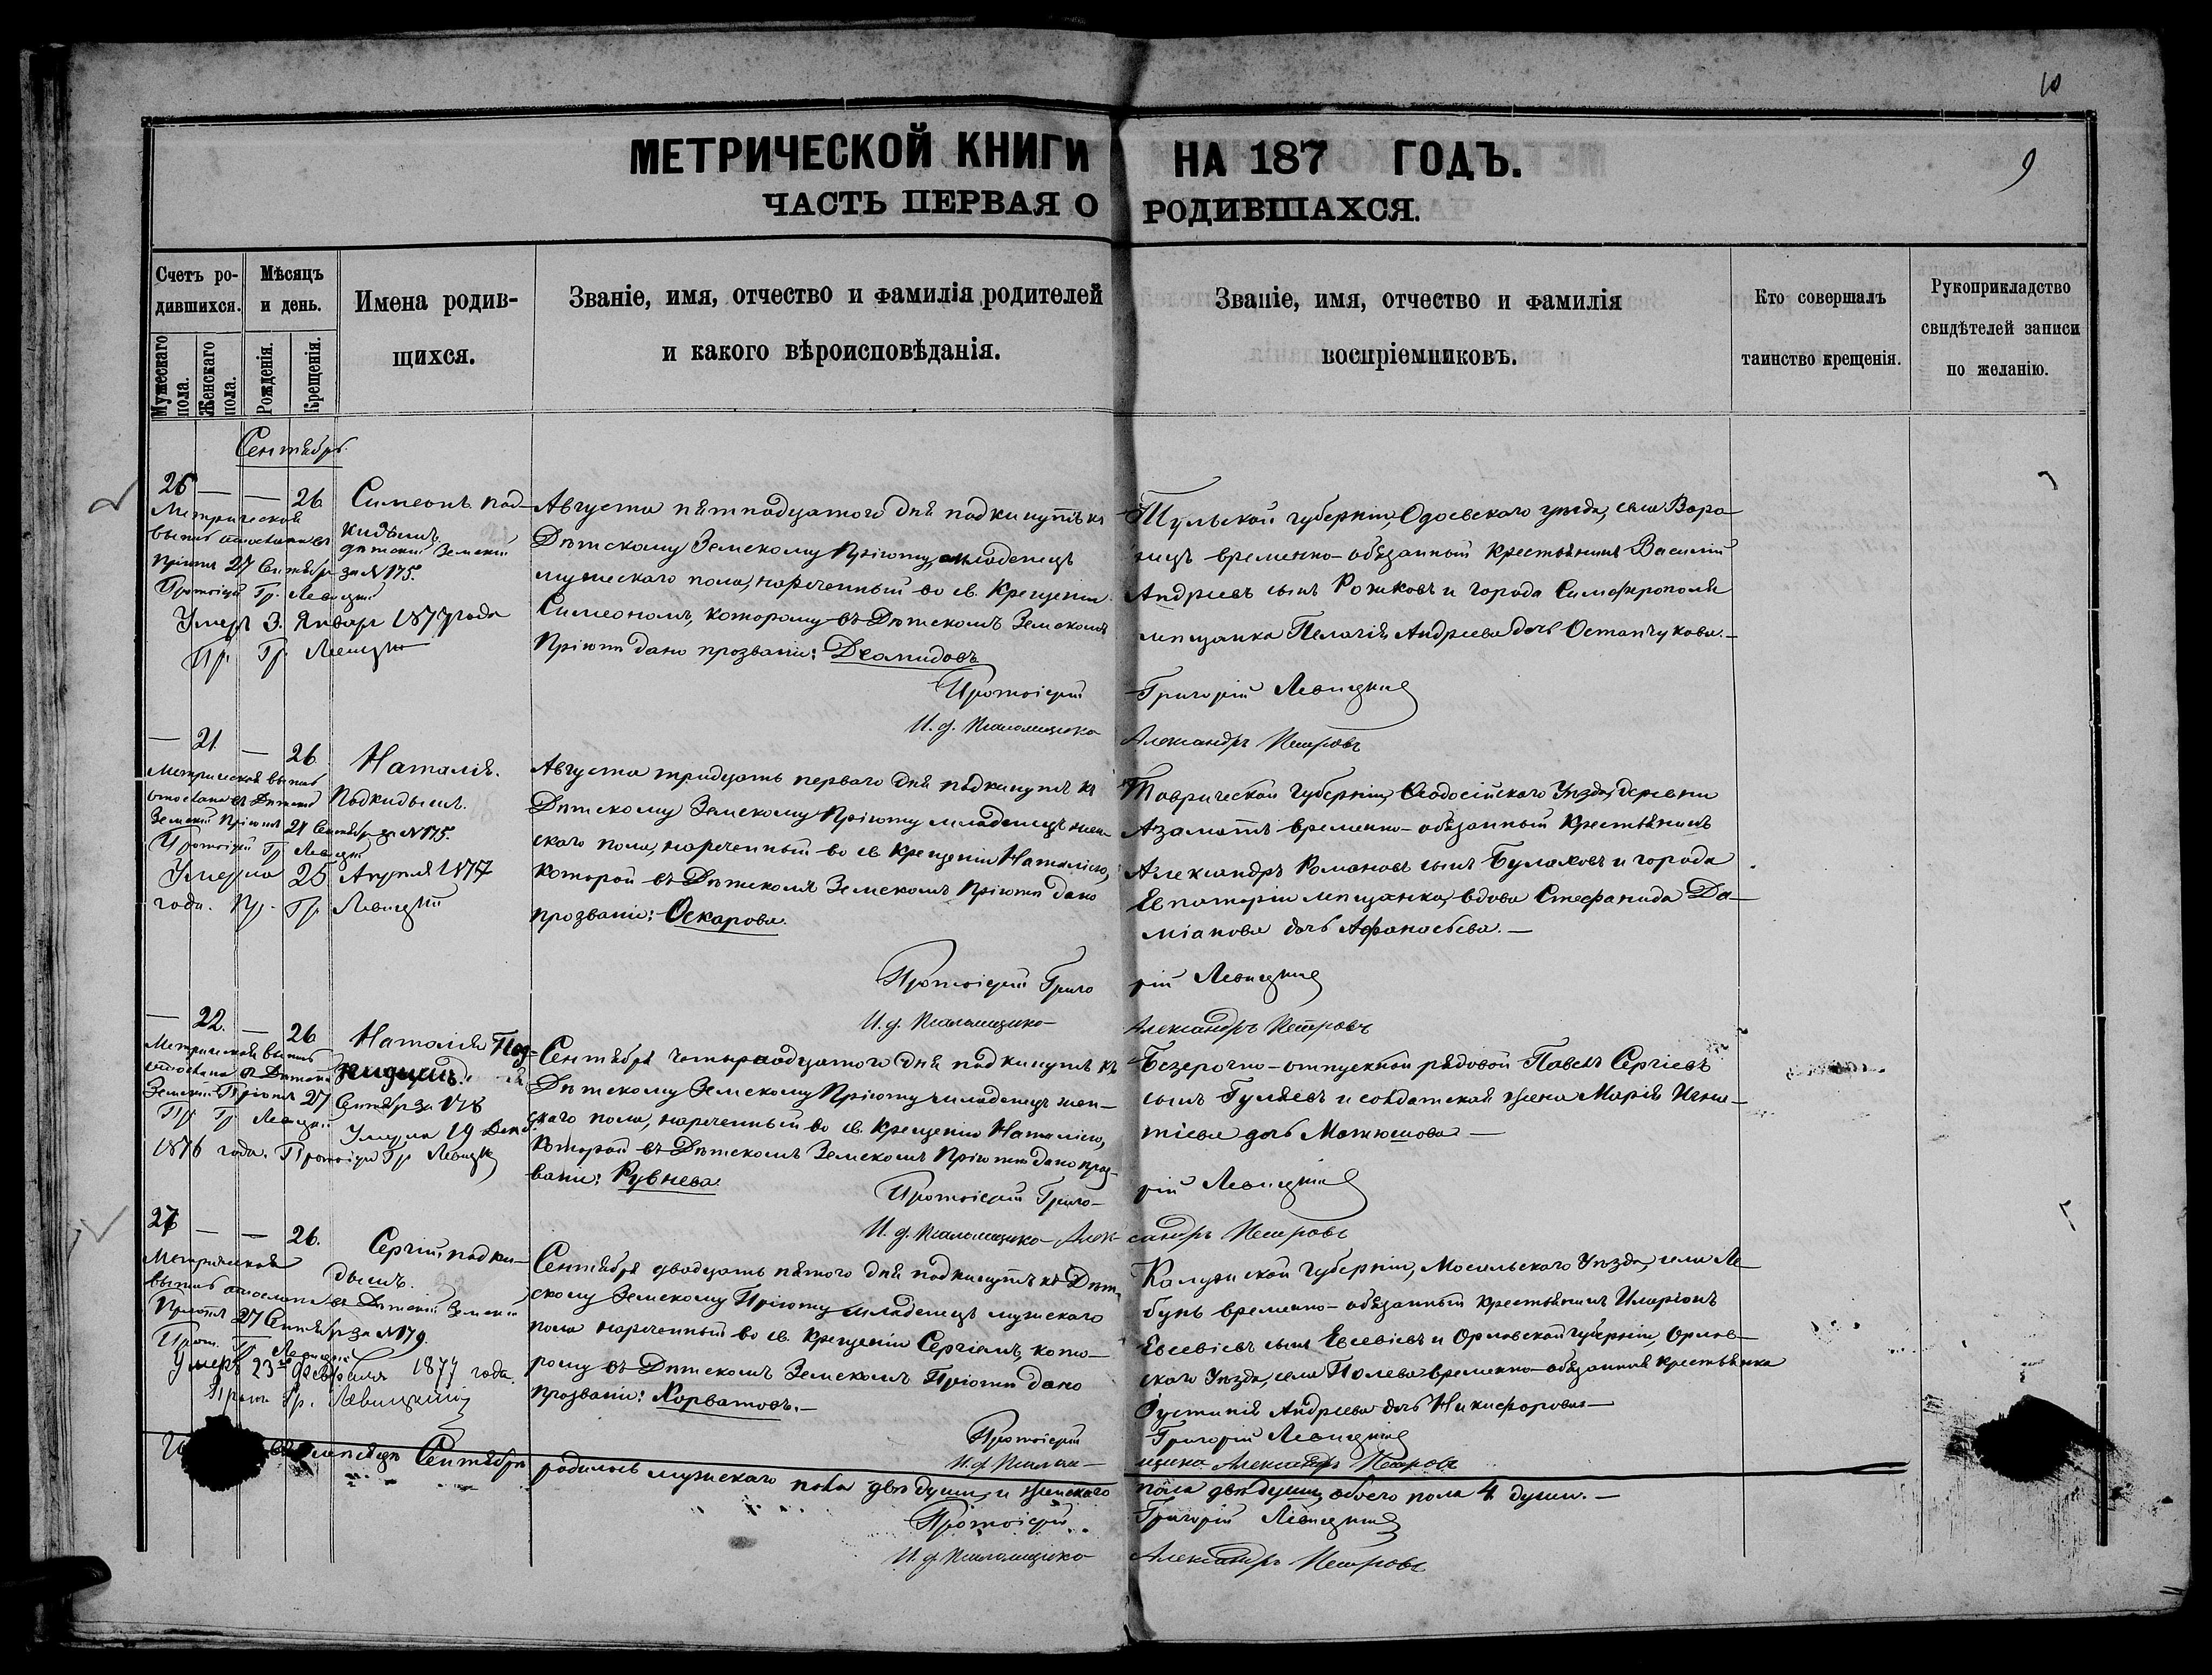 10
9
МЕТРИЧЕСКОЙ КНИГИ НА 187 ГОДЪ.
ЧАСТЬ ПЕРВАЯ О РОДИВШАХСЯ.
Счетъ ро-
дившихся.
Мужескаго пола.
Женскаго пола.
Мѣсяцъ
и день.
Рожденія.
Крещенія.
Имена родив-
щихся.
Званіе, имя, отчество и фамилія родителей
и какого вѣроисповѣданія.
Званіе, имя, отчество и фамилія
воспріемниковъ.
Кто совершалъ
таинство крещенія.
Рукоприкладство
свидѣтелей записи
по желанію.
Сентябрь.
26 — — 26
Симеонъ под-
кидышъ.
Метрическая
выпис отослана въ дѣтскій Земскій
Пріютъ 27 Сентябр за N 175.
Протоіерей Гр. Левицкій
Умеръ 3. Январ 1877 года
Пр. Гр. Левицкій
Августа пятнадцатого дня подкинутъ къ
Дѣтскому Земскому Пріюту младенецъ
мужескаго пола, нареченный во св. Крещеніи
Симеономъ, которому въ Дѣтскомъ Земскомъ
Пріютѣ дано прозваніе: Демидовъ
Тульской губерніи, Одоевскаго уѣзда, села Воро-
ницъ временно-обязанный крестьянинъ Василій
Андреевъ сынъ Рожковъ и города Симферополя
мѣщанка Пелагія Андреева дочь Остапчукова.—
Протоіерей Григорій Левицкій
И. д. Псаломщика Александръ Петровъ
— 21 — 26
Наталія.
Подкидышъ.
Метрическая выпис
отослана въ Дѣтскій
Земскій Пріютъ 27 Сентябр за N 175.
Протоіерей Гр Левицкій
Умерла 25 Апреля 1877
года. Пр. Гр Левицкій
Августа тридцать перваго дня подкинутъ къ
Дѣтскому Земскому Пріюту младенецъ жен-
скаго пола, нареченный во св Крещеніи Наталіею,
которой въ Дѣтскомъ Земскомъ Пріютѣ дано
прозваніе: Оскарова.
Таврической Губерніи, Ѳеодосійскаго Уѣзда, деревни
Азаматъ временно-обязанный Крестьянинъ
Александръ Романовъ сынъ Булаховъ и города
Евпаторіи мѣщанка, вдова Стефанида Да-
міанова дочь Афанасьева.—
Протоіерей Григорій Левицкій
И. д. Псаломщика Александръ Петровъ
— 22. — 26
Наталія Под-
кидышъ.
Метрическая выпис
отослана въ Дѣтскій
Земскій Пріютъ 27 Сентябр за 178
Пр Гр Левицкій
Умерла 19 Декаб
1876 года. Протоіерей Гр Левицкій
Сентября четырнадцатого дня подкинутъ къ
Дѣтскому Земскому Пріюту младенецъ жен-
скаго пола, нареченный во св. Крещеніи Наталіею,
которой въ Дѣтскомъ Земскомъ Пріютѣ дано проз-
ваніе: Рувнева.
Безсрочно-отпускной рядовой Павелъ Сергіевъ
сынъ Гуляевъ и солдатская жена Марія Игна-
тіева дочь Матюшова —
Протоіерей Григорій Левицкій
И. д. Псаломщика Александръ Петровъ
27 — — 26.
Сергій, подки-
дышъ.
Метрическая
выпис отослана въ Дѣтскій Земскій
Пріютъ 27 Сентябр за N 179.
Прот. Гр Левицкій
Умеръ 23го Февраля 1877 года.
Прот. Гр. Левицкій
Сентября двадцать пятого дня подкинутъ къ Дѣт-
скому Земскому Пріюту младенецъ мужскаго
пола нареченный во св. Крещеніи Сергіемъ, кото-
рому въ Дѣтскомъ Земскомъ Пріютѣ дано
прозваніе: Хорватовъ.—
Калужской Губерніи, Мосальскаго Уѣзда, села Ле-
бунь временно-обязанный Крестьянинъ Иларіонъ
Евсевіевъ сынъ Евсевіевъ и Орловской губерніи, Орлов-
скаго Уѣзда, села Полева временно-обязанная Крестьянка
Іустинія Андреева дочь Никифорова—
Протоіерей Григорій Левицкій
И. д. Псаломщика Александръ Петровъ
мѣсяцѣ Сентябрѣ родилось мужескаго пола двѣ души, и женскаго пола двѣ души, обоего пола 4 души.—
Протоіерей Григорій Левицкій
И. д. Псаломщика Александръ Петровъ